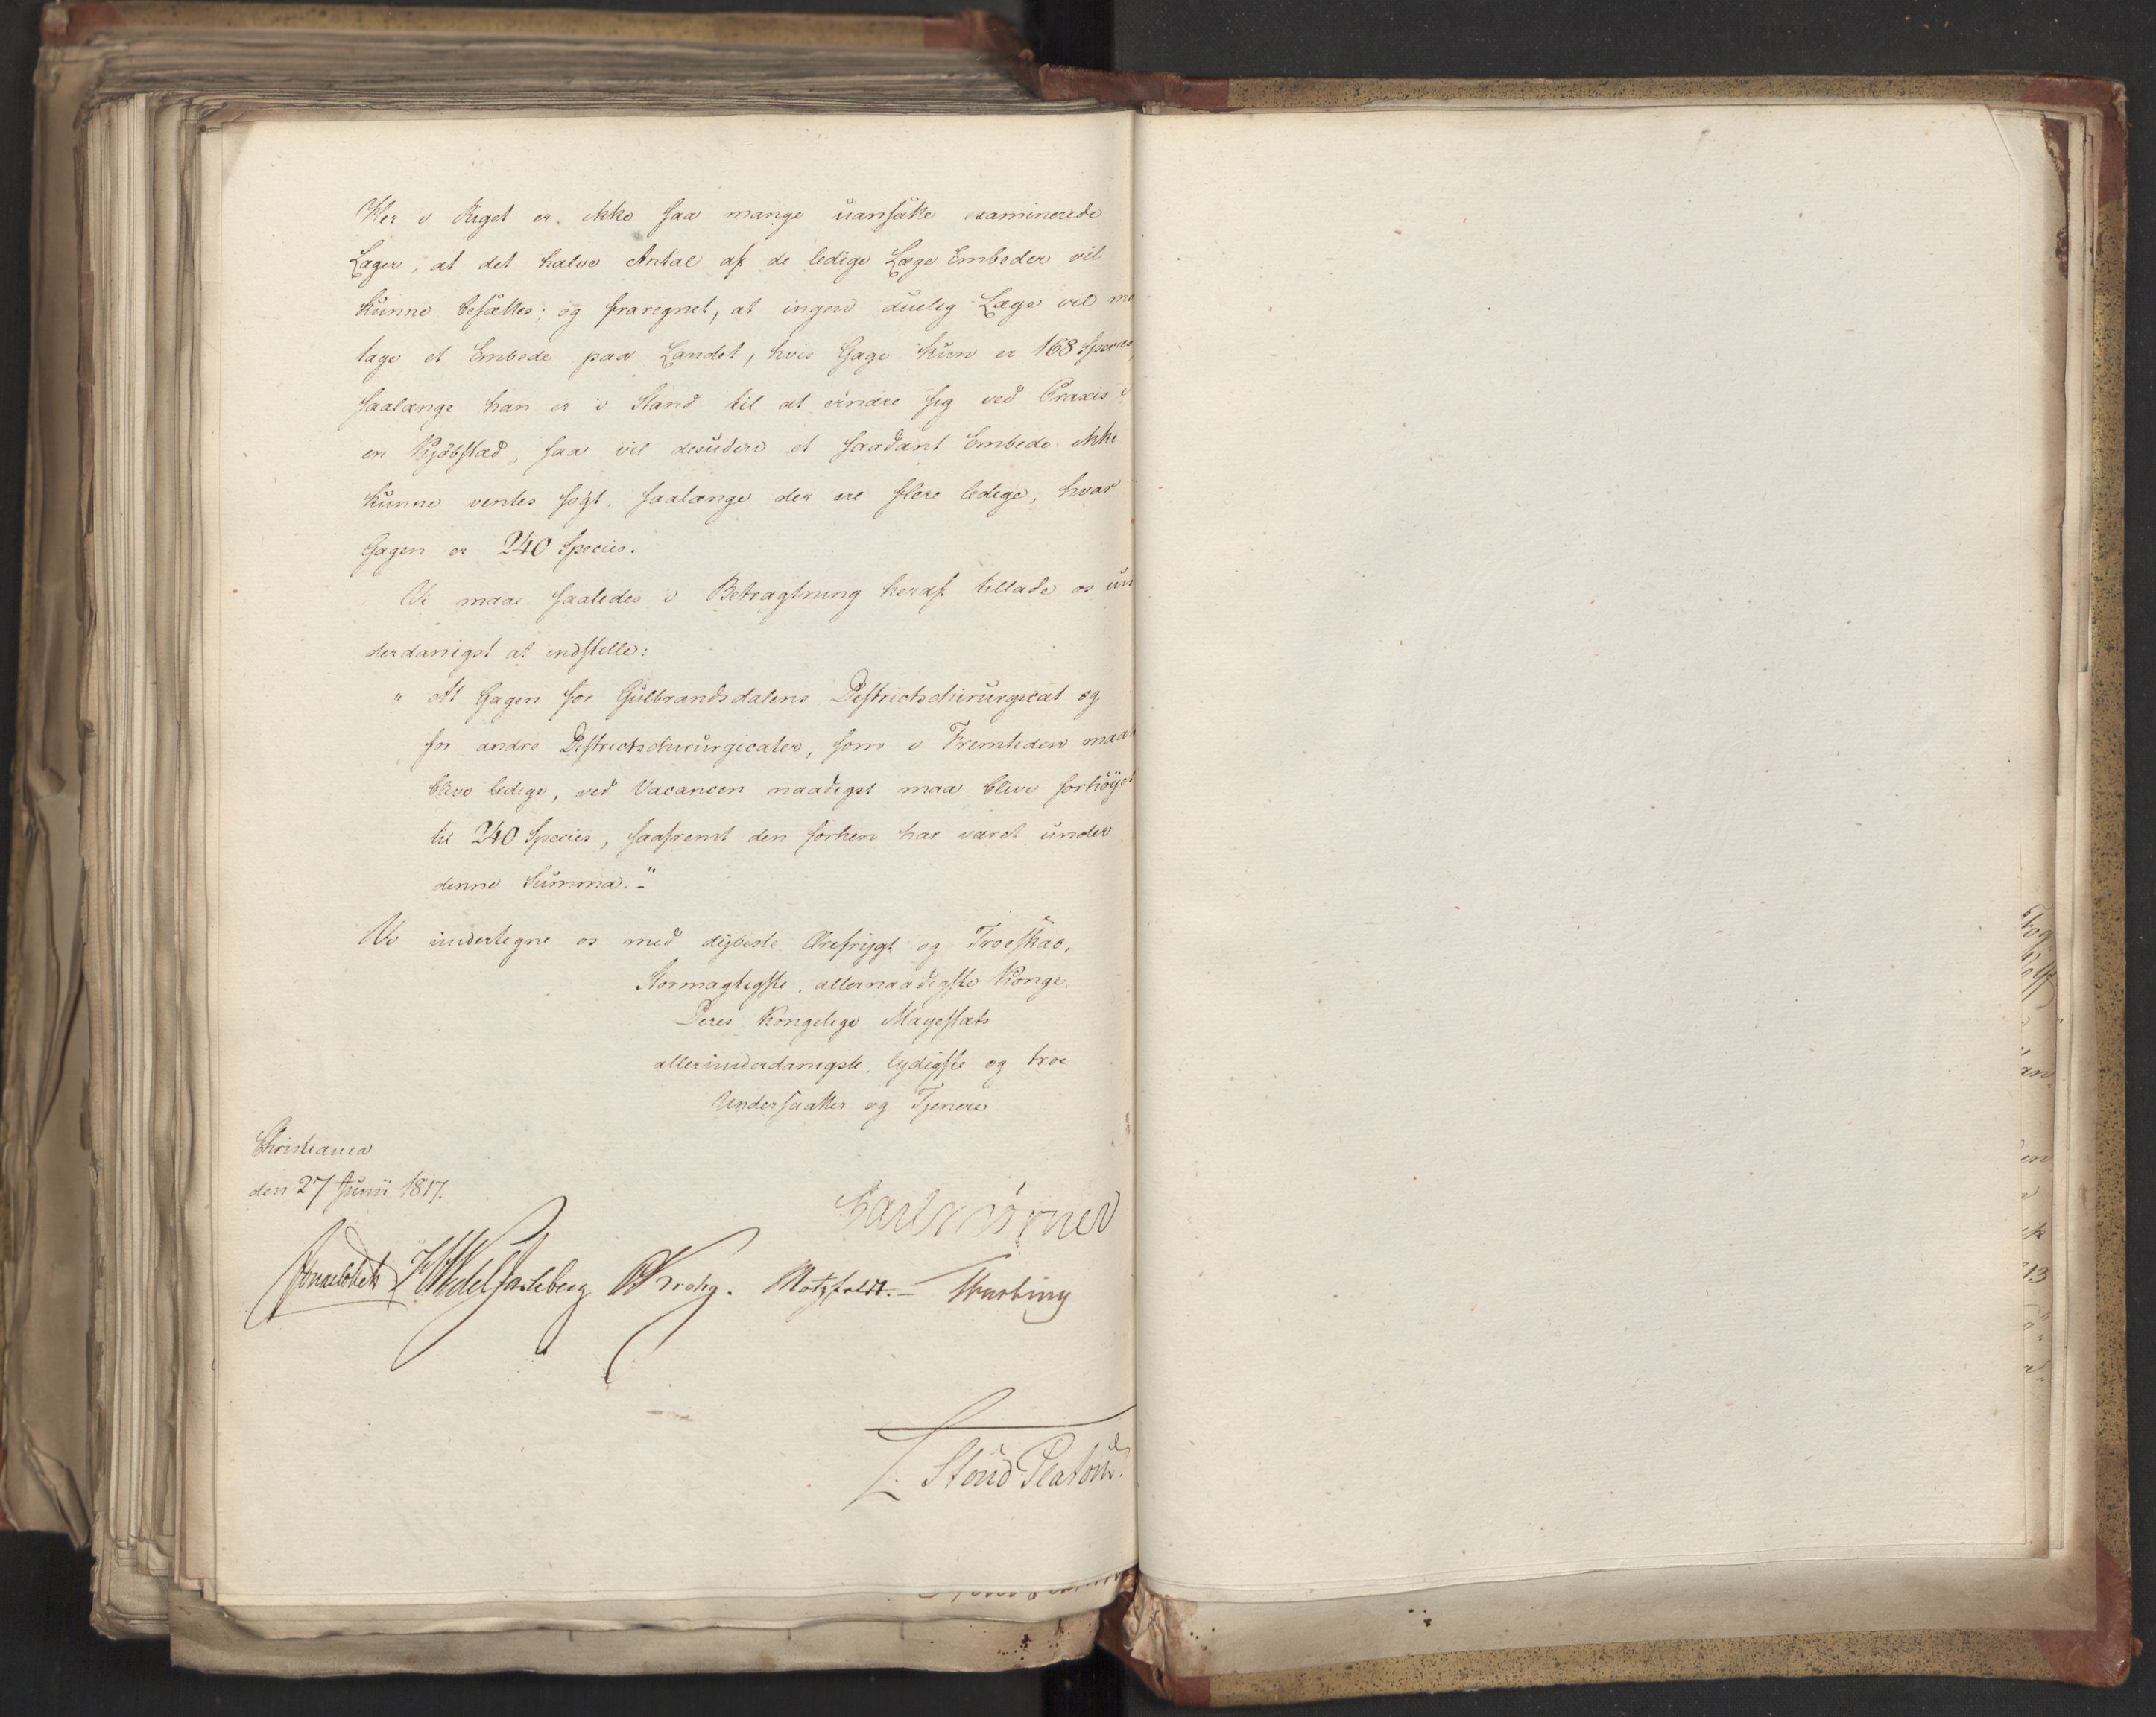 Her i Riget er ikke saa mange uansatte examinerede
Læger, at det halve Antal af de ledige Læge Embeder vil
kunne besættes; og fraregnet, at ingen duelig Læge vil mo
tage et Embede paa Landet, hvis Gage kun er 168 Species,
saalænge han er i Stand til at ernære sig ved Praxis i
en Kjøbstad, saa vil desuden et saadant Embede ikke
kunne ventes søgt, saalænge der ere flere ledige, hvor
Gagen er 240 Species.
Vi maae saaledes i Betragtning heraf tillade os un
derdanigst at indstille:
" At Gagen for Gulbrandsdalens Districtschirurgicat og
for andre Districtschirurgicater, som i Fremtiden maatte
blive ledige, ved Vacancen naadigst maa blive forhøyet
til 240 Species, saafremt den forhen har været under
denne Summa."
Vi undertegne os med dybeste Ærefrygt og Troeskab,
Stormægtigste, allernaadigste Konge
Deres Kongelige Mayestæts
allerunderdanigste, lydigste og troe
Undersaatter og Tjenere
Christiania
den 27 Junii 1817.
Carl Mörner
Sommerhielm HWedelJarlsberg Krohg. Motzfeldt. –
L. Stoud Platou